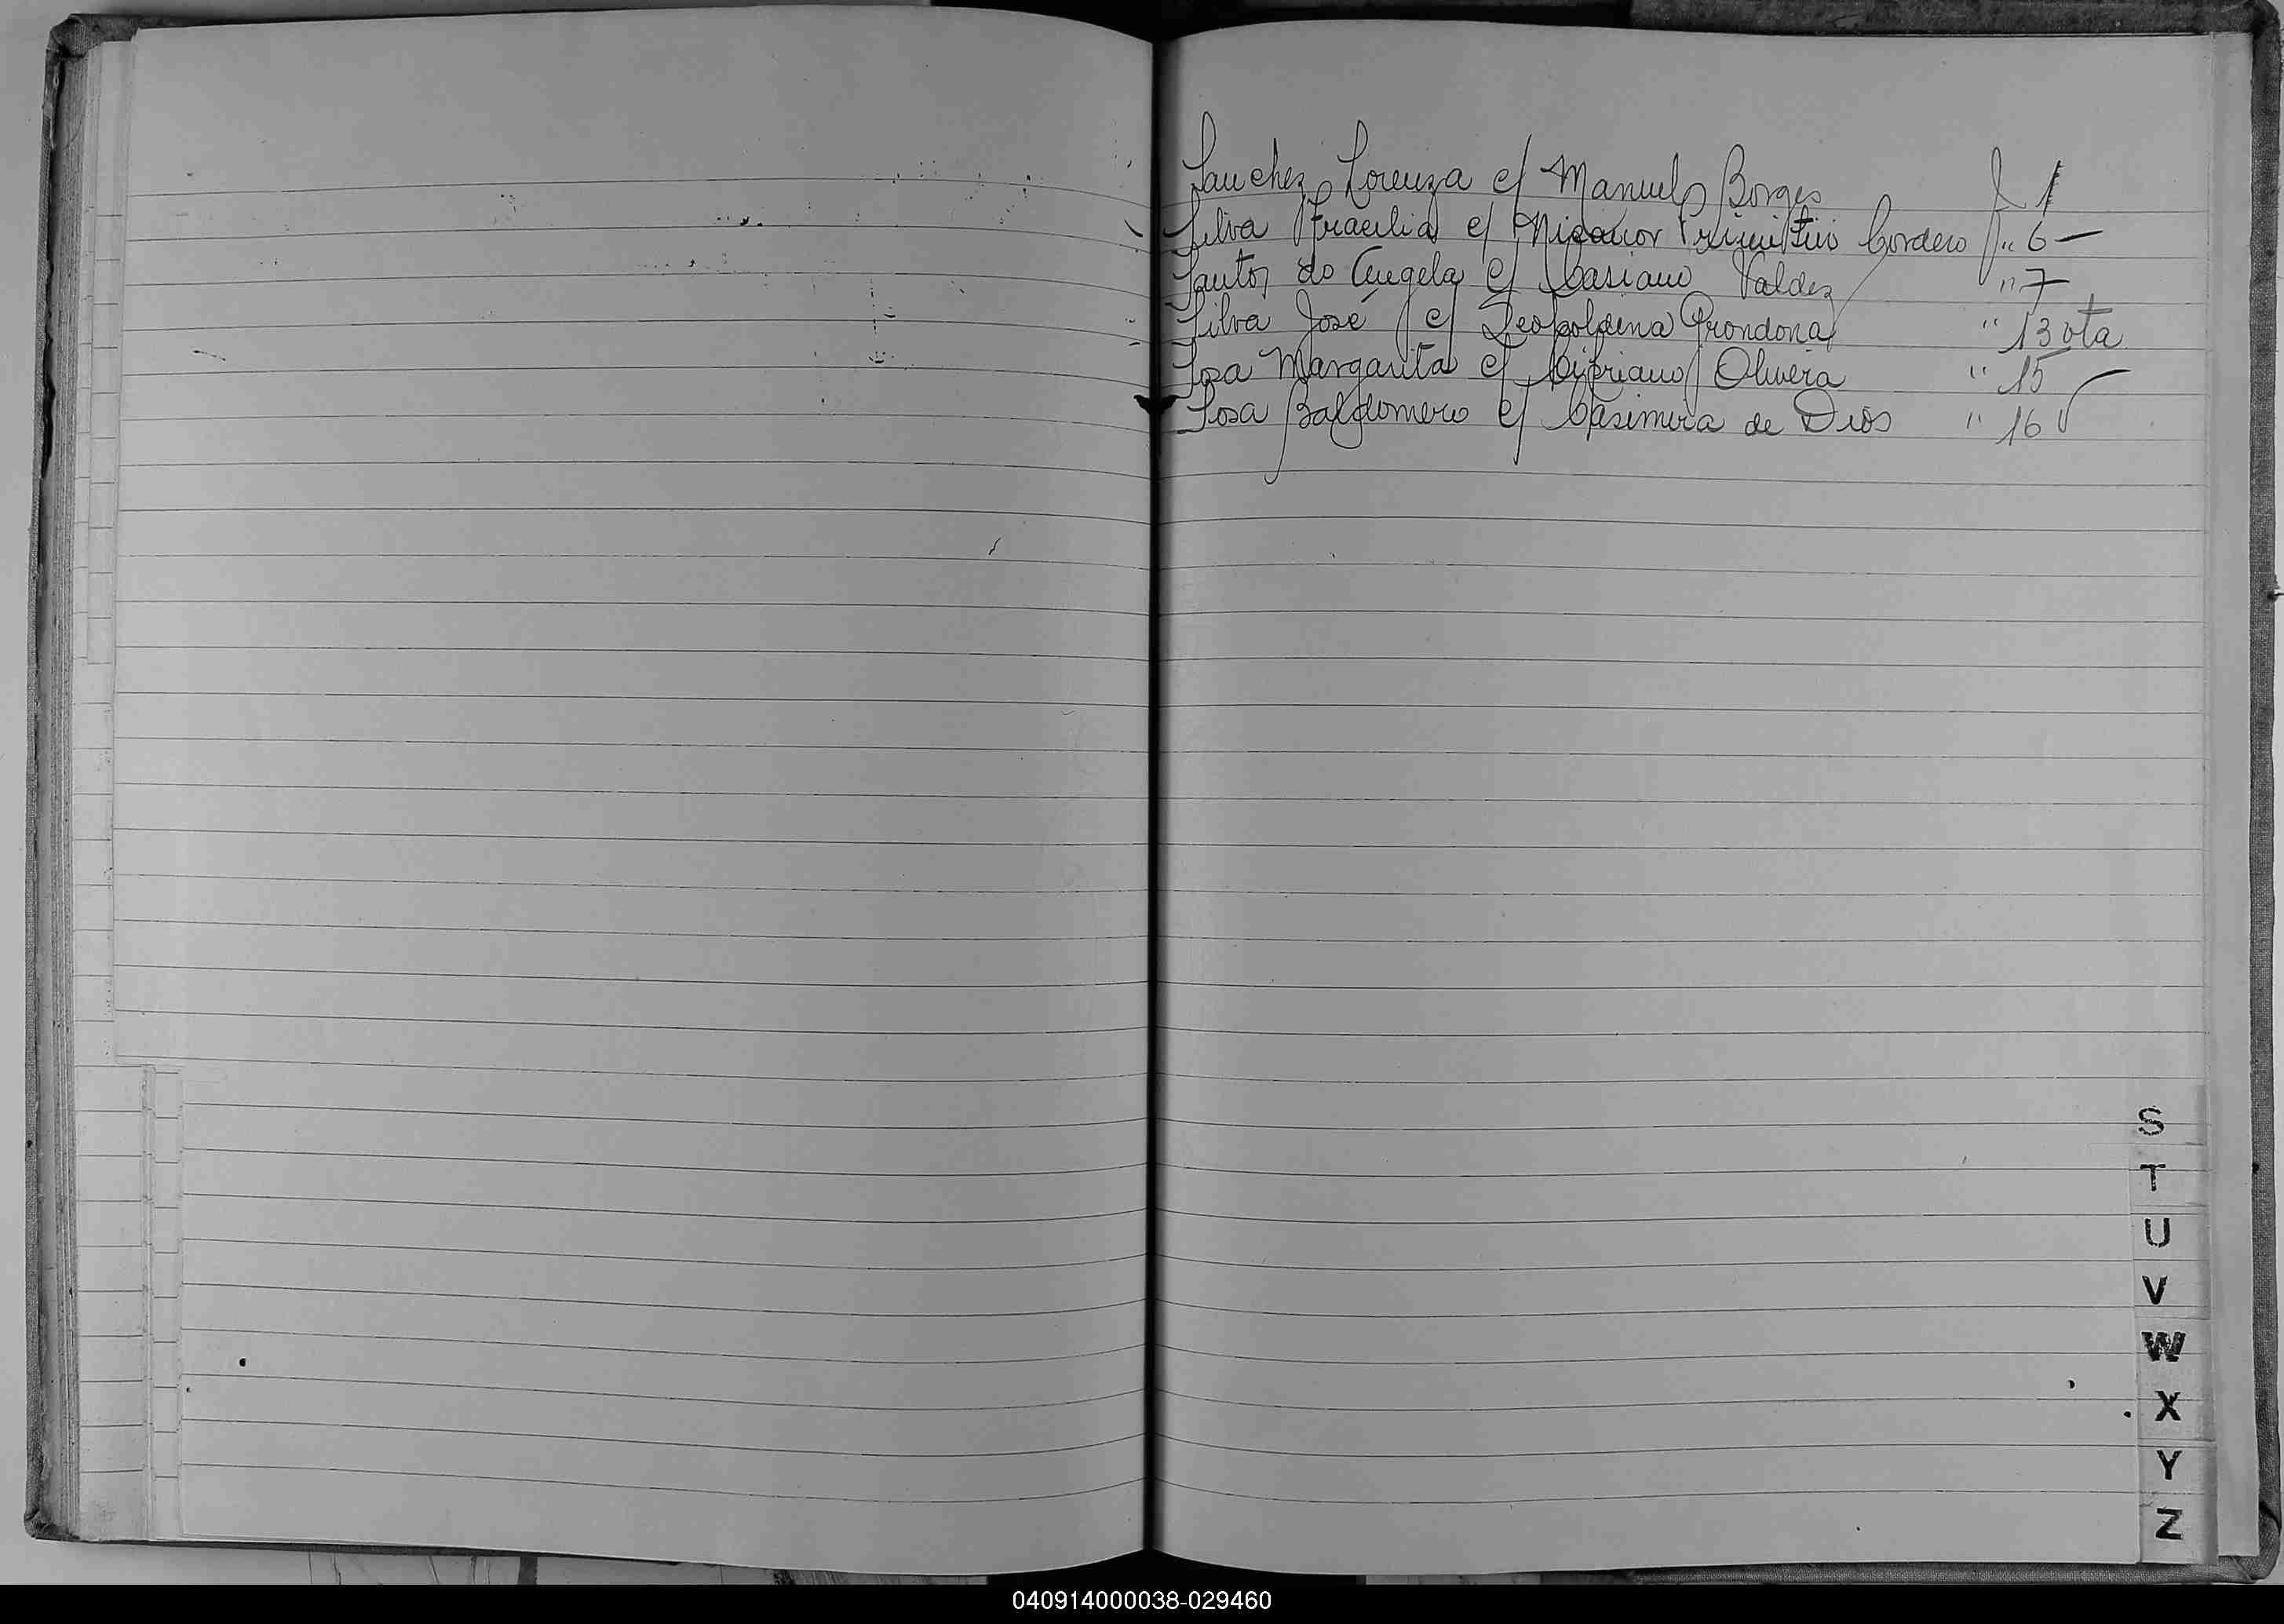 Sanchez Lorenza c/ Manuel Borges f 1
Silva c/ Nicanor Primitivo Cordero " 6 —
Santos do Angela c/ Casiano Valdez " 7 —
Silva José c/ Leopoldina Grondona " 13 vta
Sosa Margarita c/ Cipriano Olivera " 15
Sosa Baldomero c/ Casimira de Dios " 16
S
T
U
V
W
X
Y
Z
040914000038-029460